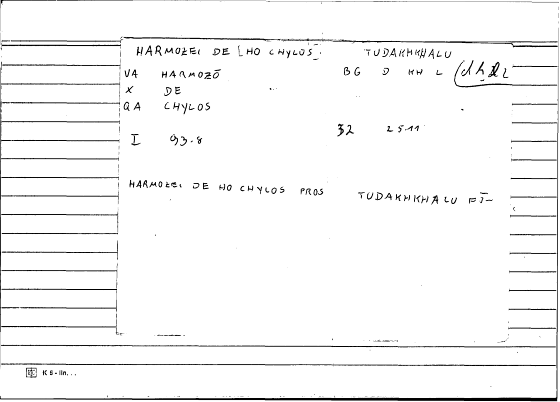 HARMOZEI DE [HO CHYLOS] TUDAKHKHALU
VA HARMOZŌ BG D KH L (dhll
X DE
QA CHYLOS
I 93.8 32 25.11
HARMOZEI DE HO CHYLOS PROS TUDAKHKHALU FĪ-
K 8 - lin. . .